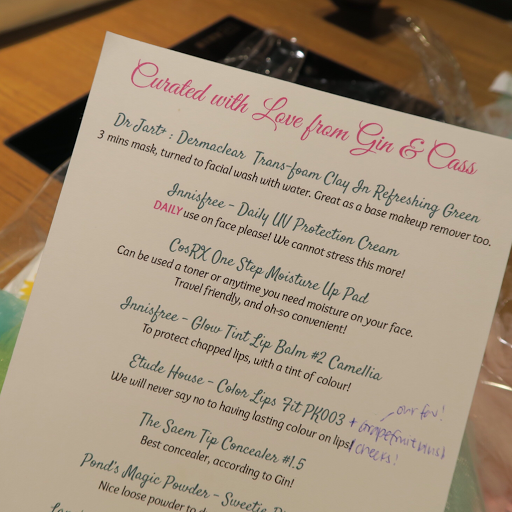 Curated with Love from Gin & Cass
Dr Jart+ : Dermaclear Trans-foam Clay In Refreshing Green
3 mins mask, turned to facial wash with water. Great as a base makeup remover too.
Innisfree - Daily UV Protection Cream
DAILY use on face please! We cannot stress this more!
CosRX One Step Moisture Up Pad
Can be used a toner or anytime you need moisture on your face.
Travel friendly, and oh-so convenient!
Innisfree - Glow Tint Lip Balm #2 Camellia
To protect chapped lips, with a tint of colour!
Etude House - Color Lips Fit PK003
- our fav!
We will never say no to having lasting colour on lips!
+ Grapefruit
cheeks!
The Saem Tip Concealer #1.5
Best concealer, according to Gin!
Pond's Magic Powder - Sweetie
Nice loose powder to